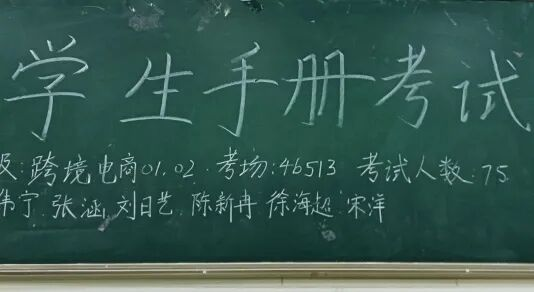 学生手册考试
及:跨境电商01.02 考场:46513 考试人数:75
伟宁 张涵 刘日艺 陈新冉 徐海超 宋洋